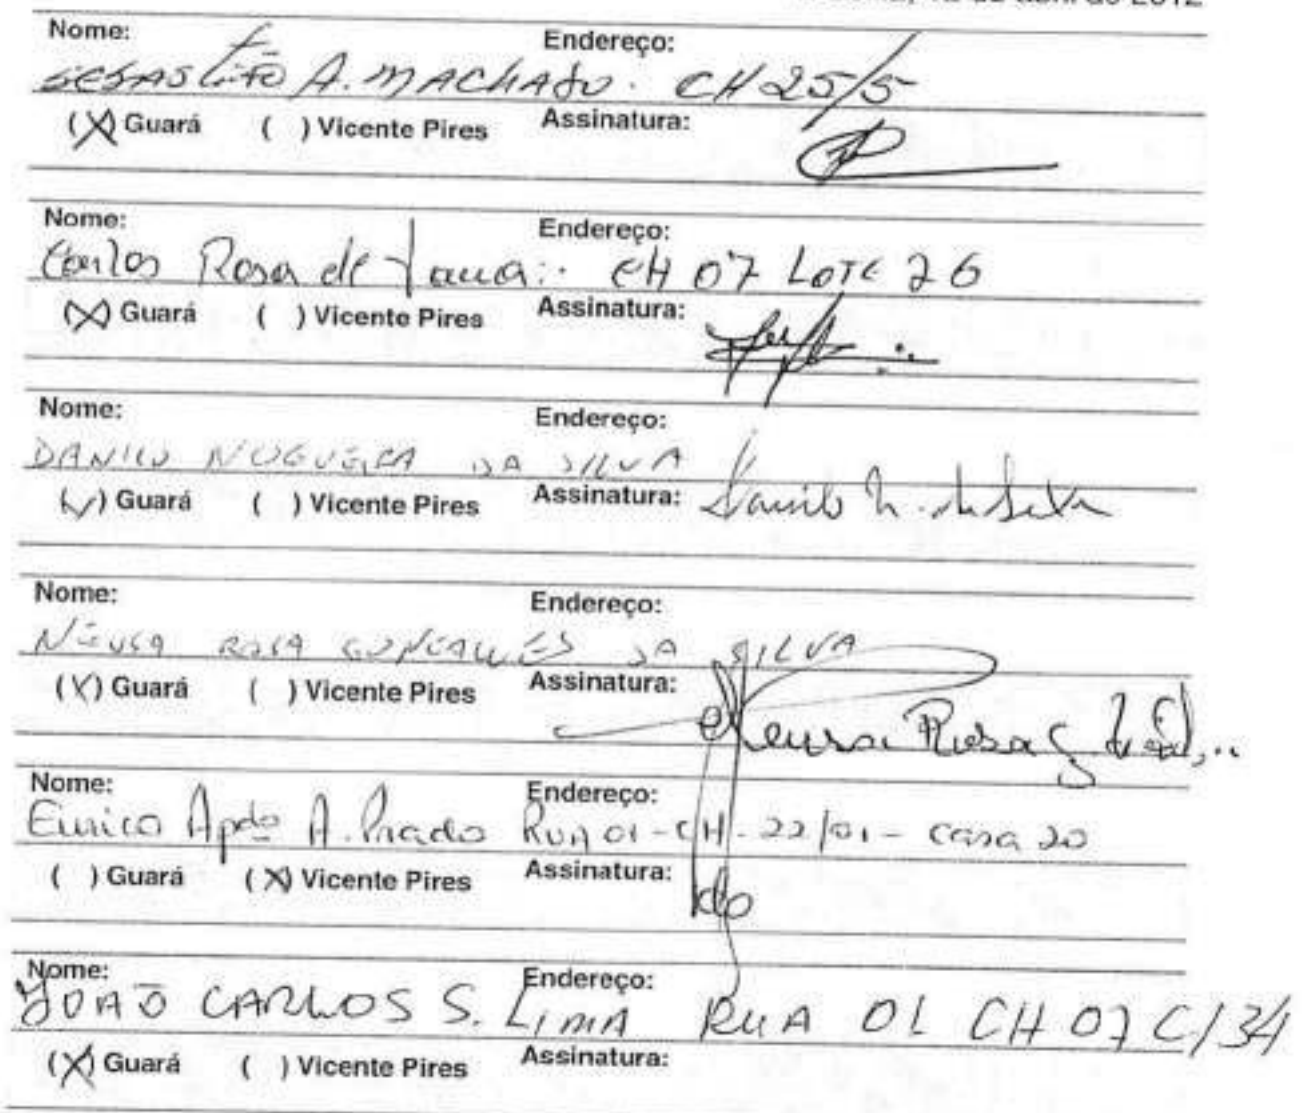 de abril de 2012
Nome: Endereço:
SEBASTIÃO A. MACHADO. CH 25/5
(X) Guará ( ) Vicente Pires Assinatura:
Nome: Endereço:
Carlos Rosa de CH 07 LOTE 26
(X) Guará ( ) Vicente Pires Assinatura:
Nome: Endereço:
DANILO NOGUEIRA DA SILVA
(✓) Guará ( ) Vicente Pires Assinatura: Danilo N. da Silva
Nome: Endereço:
NEUSA ROSA GONÇALVES DA SILVA
(X) Guará ( ) Vicente Pires Assinatura: Neusa Rosa G.
Nome: Endereço:
Eurico Apdo A. Prado RUA 01 - CH - 22/01 - casa 20
( ) Guará (X) Vicente Pires Assinatura:
Nome: Endereço:
JOÃO CARLOS S. LIMA RUA 01 CH 07 C/34
(X) Guará ( ) Vicente Pires Assinatura: